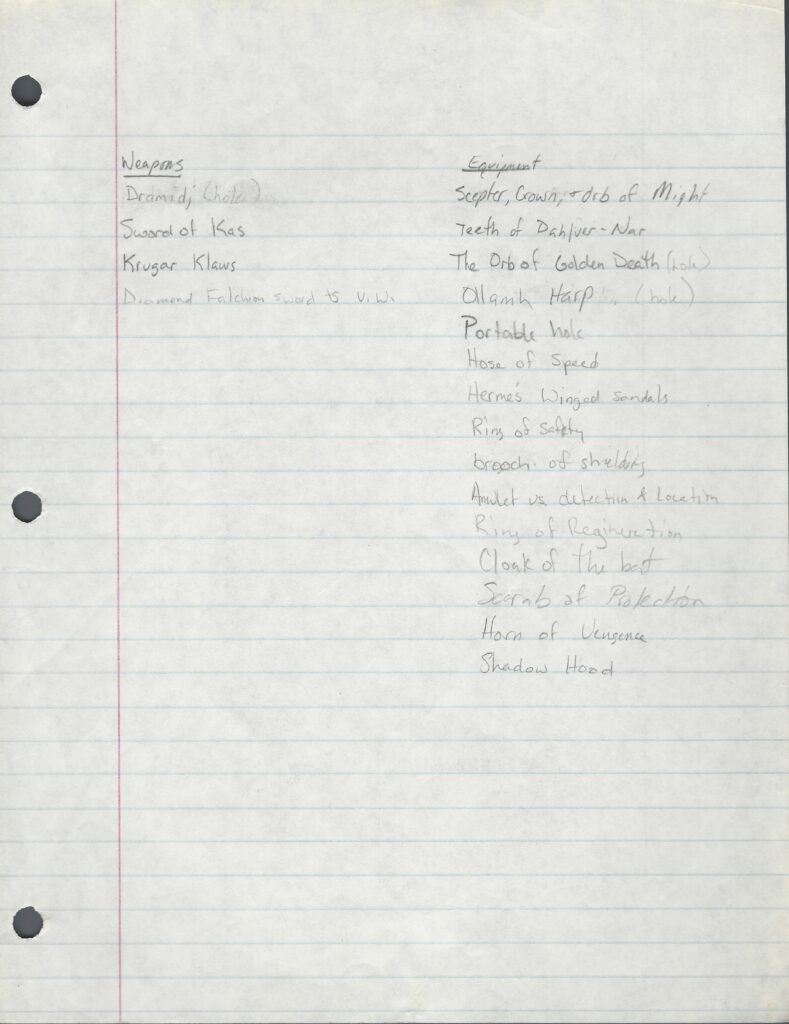 Weapons
Dramidj (hole)
Sword of Kas
Krugar Klaws
Diamond Falchion sword +5 V.W.
Equipment
Scepter, Crown, + Orb of Might
Teeth of Dahlver-Nar
The Orb of Golden Death (hole)
Ollamh Harp (hole)
Portable hole
Hose of Speed
Herme's Winged sandals
Ring of safety
brooch of shielding
Amulet vs. detection & Location
Ring of Regineration
Cloak of the bat
Scarab of Protection
Horn of Vengence
Shadow Hood